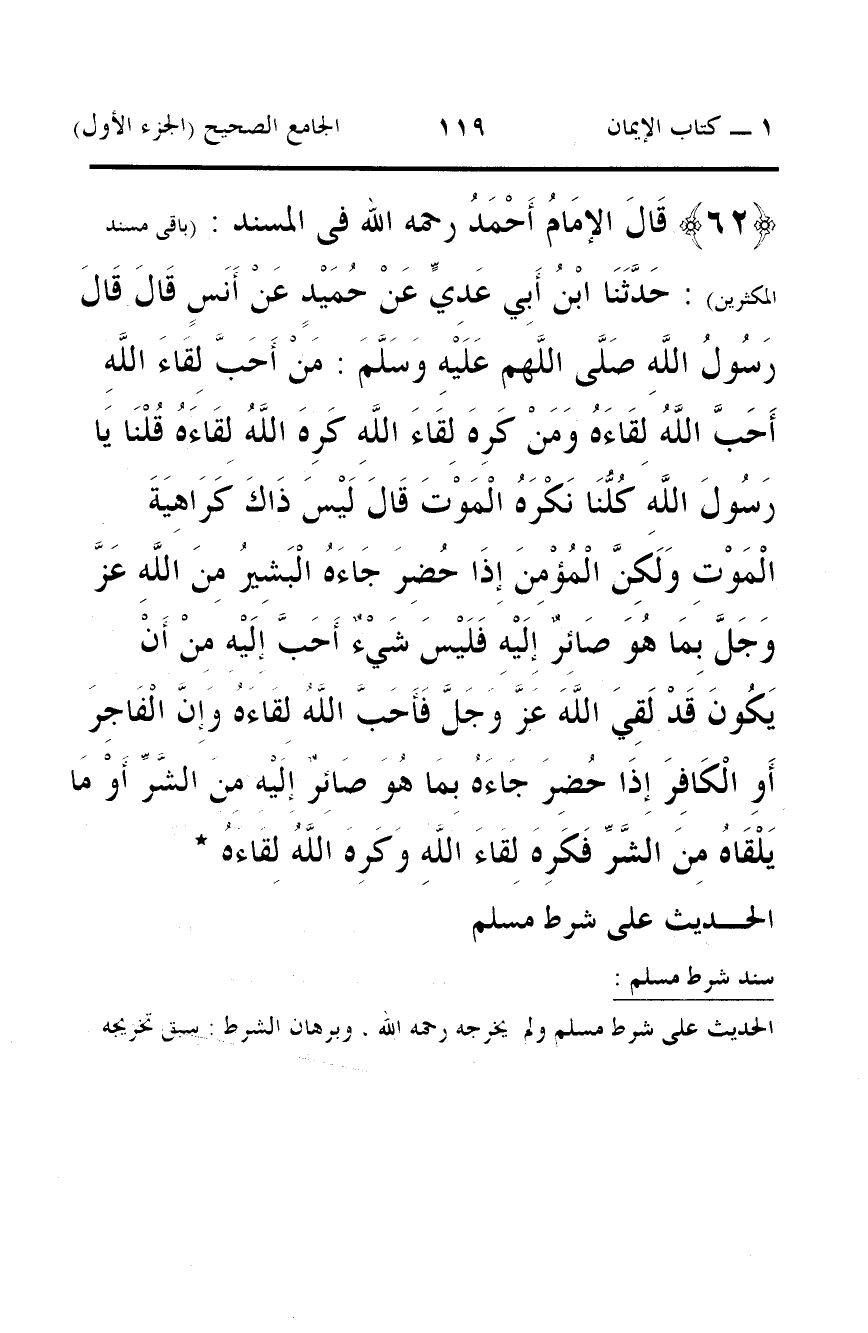 ١ ـ كتاب الإيمان ١١٩ الجامع الصحيح (الجزء الأول)
﴿٦٢﴾ قَالَ الإِمَامُ أَحْمَدُ رحمه الله فى المسند : (باقى مسند
المكثرين) : حَدَّثَنَا ابْنُ أَبِي عَدِيٍّ عَنْ حُمَيْدٍ عَنْ أَنَسٍ قَالَ قَالَ
رَسُولُ اللَّهِ صَلَّى اللَّهم عَلَيْهِ وَسَلَّمَ : مَنْ أَحَبَّ لِقَاءَ اللَّهِ
أَحَبَّ اللَّهُ لِقَاءَهُ وَمَنْ كَرِهَ لِقَاءَ اللَّهِ كَرِهَ اللَّهُ لِقَاءَهُ قُلْنَا يَا
رَسُولَ اللَّهِ كُلُّنَا نَكْرَهُ الْمَوْتَ قَالَ لَيْسَ ذَاكَ كَرَاهِيَةَ
الْمَوْتِ وَلَكِنَّ الْمُؤْمِنَ إِذَا حُضِرَ جَاءَهُ الْبَشِيرُ مِنَ اللَّهِ عَزَّ
وَجَلَّ بِمَا هُوَ صَائِرٌ إِلَيْهِ فَلَيْسَ شَيْءٌ أَحَبَّ إِلَيْهِ مِنْ أَنْ
يَكُونَ قَدْ لَقِيَ اللَّهَ عَزَّ وَجَلَّ فَأَحَبَّ اللَّهُ لِقَاءَهُ وَإِنَّ الْفَاجِرَ
أَوِ الْكَافِرَ إِذَا حُضِرَ جَاءَهُ بِمَا هُوَ صَائِرٌ إِلَيْهِ مِنَ الشَّرِّ أَوْ مَا
يَلْقَاهُ مِنَ الشَّرِّ فَكَرِهَ لِقَاءَ اللَّهِ وَكَرِهَ اللَّهُ لِقَاءَهُ *
الحـــديث على شرط مسلم
سند شرط مسلم :
الحديث على شرط مسلم ولم يخرجه رحمه الله . وبرهان الشرط : سبق تخريجه